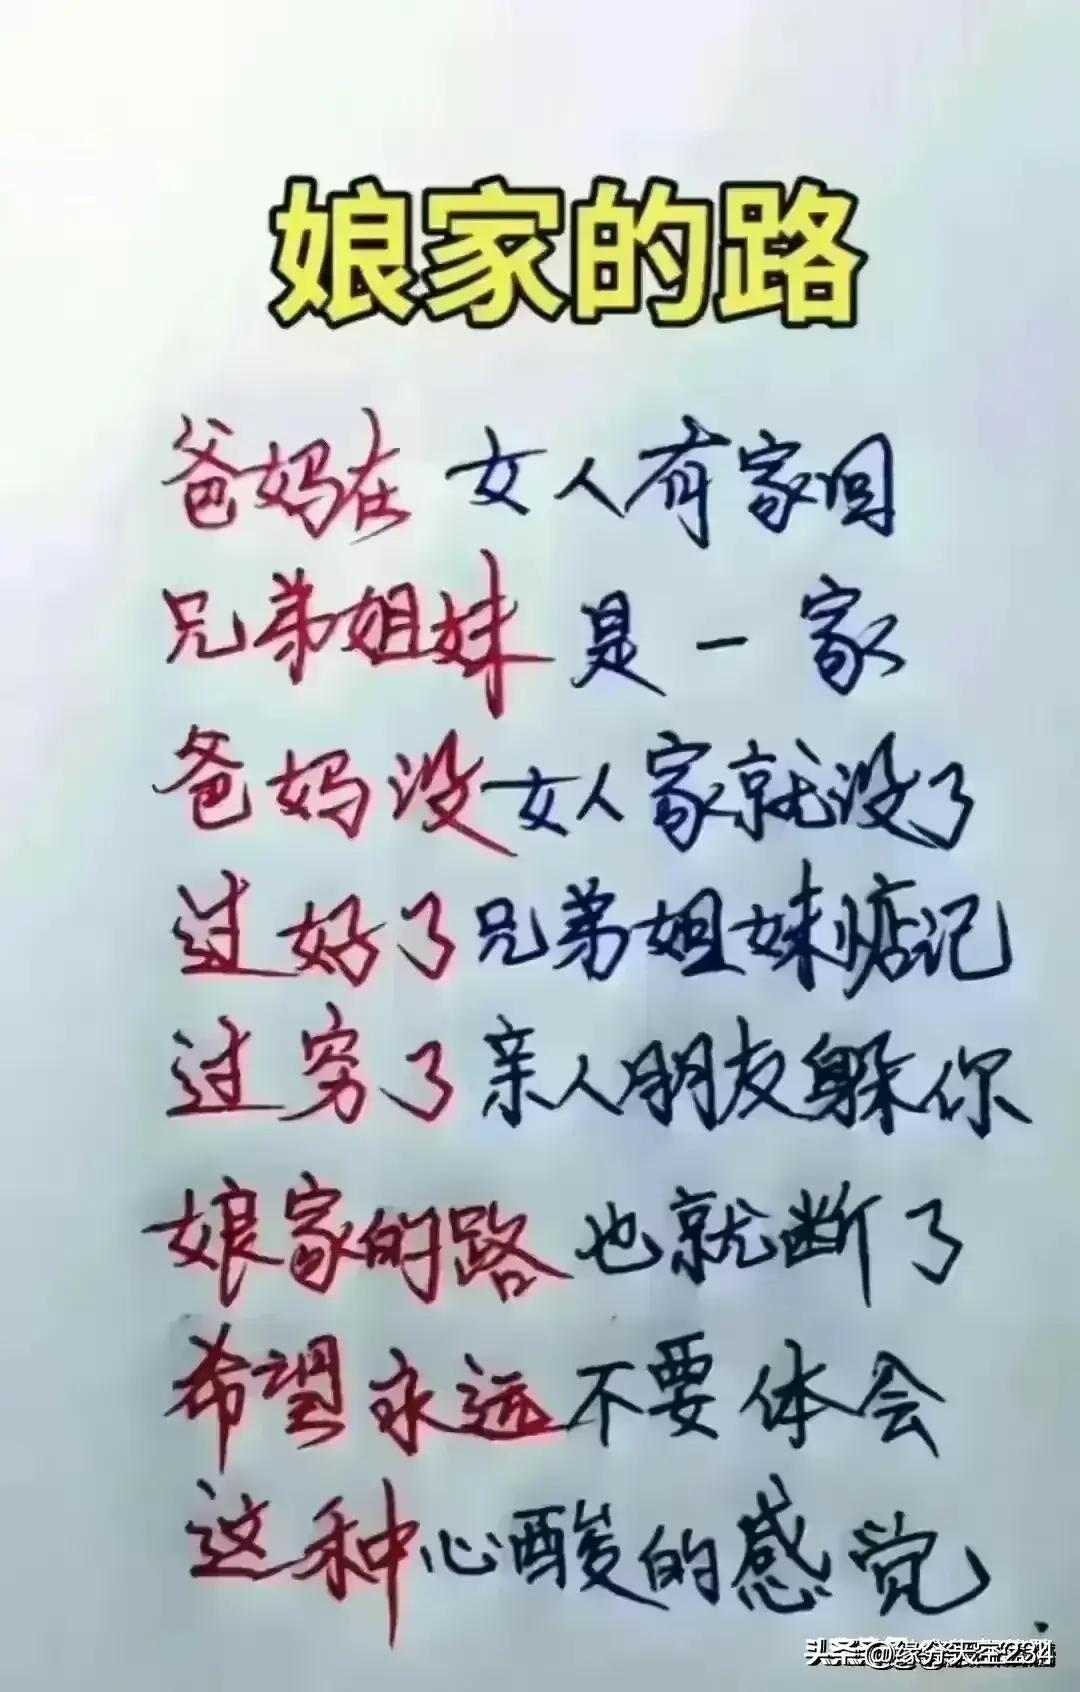 娘家的路
爸妈在 女人有家回
兄弟姐妹 是一家
爸妈没女人家就没了
过好了兄弟姐妹惦记
过穷了亲人朋友躲你
娘家的路也就断了
希望永远不要体会
这种心酸的感觉.
头条 @缘分天空234